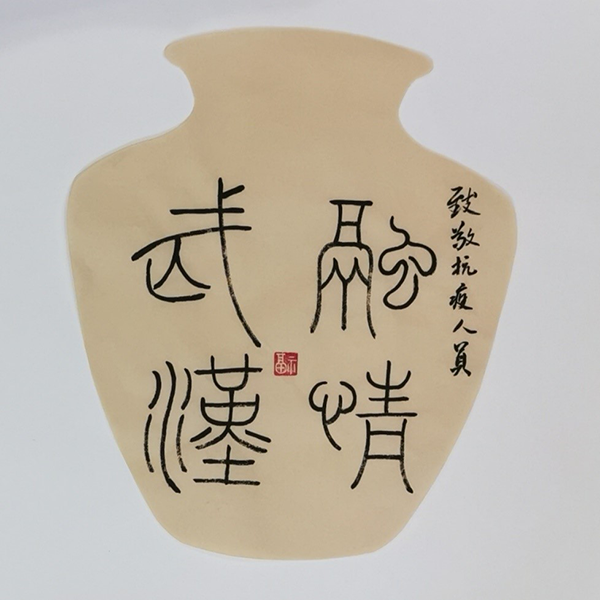 致敬抗疫人員
融情
武漢